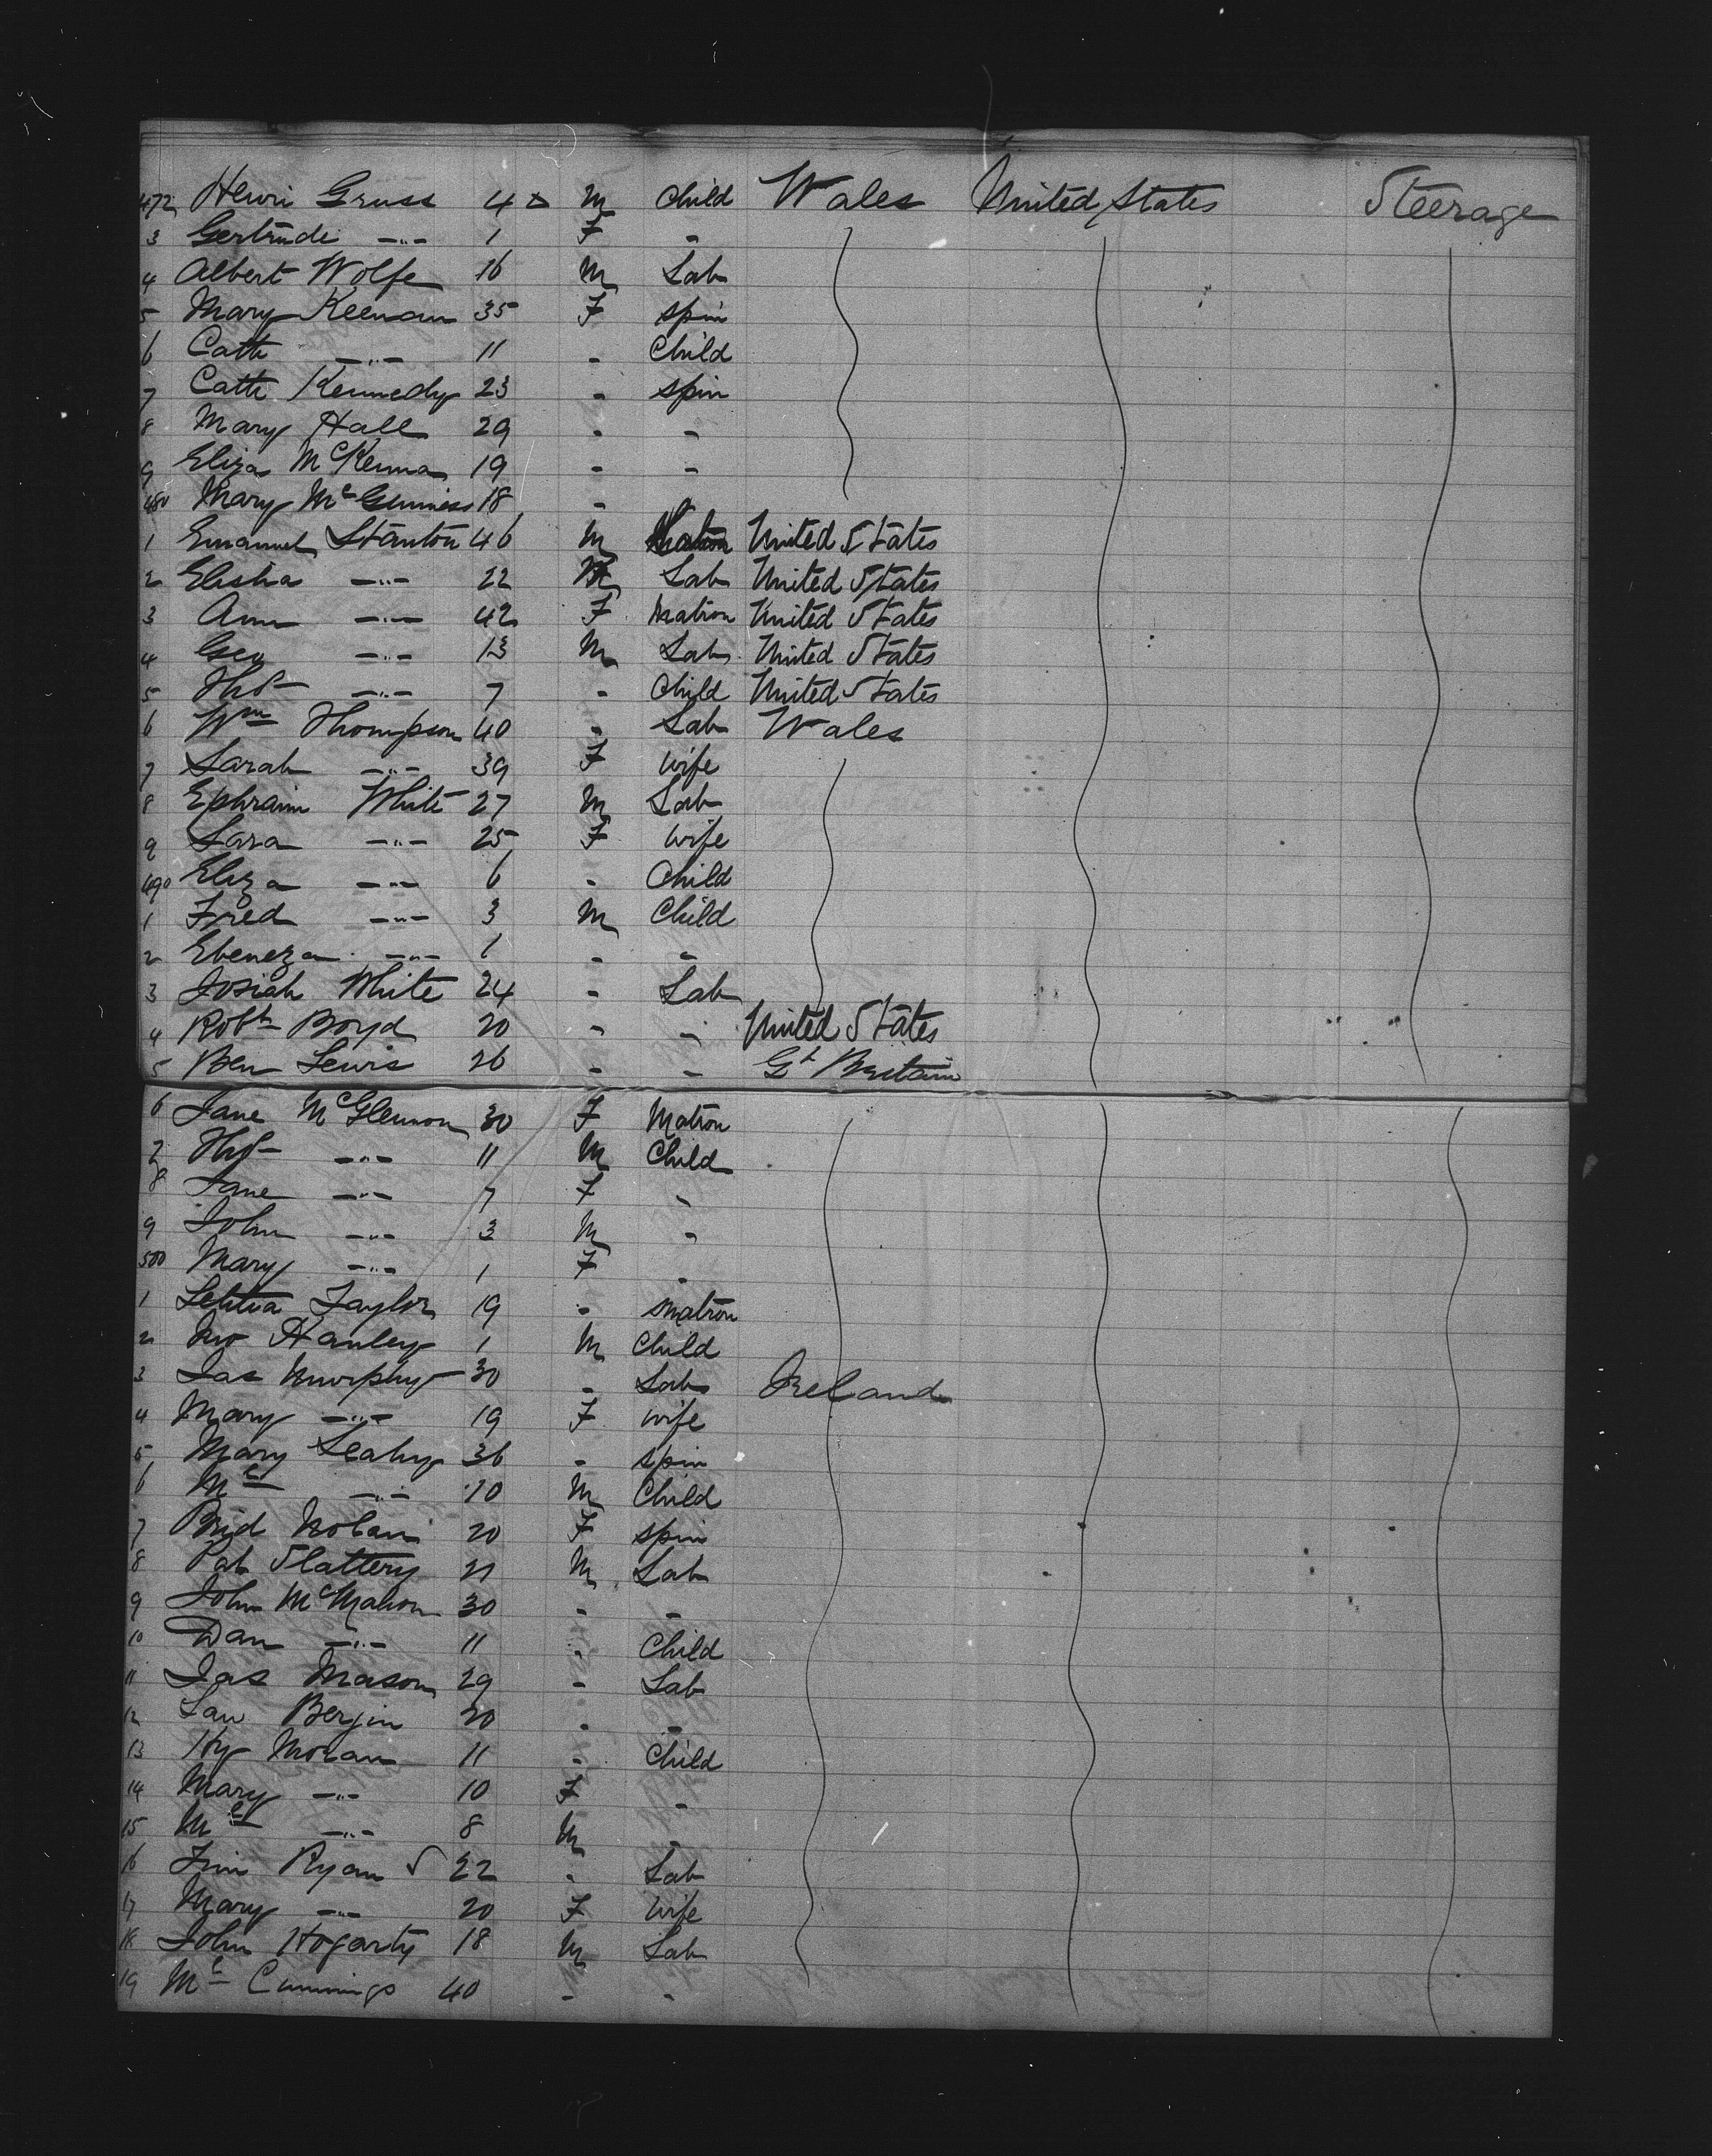 472 Henri Gruss 4 M Child Wales United States Steerage
3 Gertrude —"— 1 F -
4 Albert Wolfe 16 M Lab
5 Mary Keenan 35 F spin
6 Cath —"— 11 - Child
7 Cath Kennedy 23 - spin
8 Mary Hall 29 - -
9 Eliza McKenna 19 - -
480 Mary McGuiness 18 -
1 Emanuel Stanton 46 M United States
2 Elisha —"— 22 M Lab United States
3 Ann —"— 42 F Matron United States
4 Geo —"— 13 M Lab United States
5 Thos —"— 7 - Child United States
6 Wm Thompson 40 - Lab Wales
7 Sarah —"— 39 F Wife
8 Ephraim White 27 M Lab
9 Sara —"— 25 F Wife
490 Eliza —"— 6 - Child
1 Fred —"— 3 M Child
2 Ebeneza —"— 1 - -
3 Josiah White 24 - Lab
4 Robt Boyd 20 - - United States
5 Ben Lewis 26 - - Gt Britain
6 Jane McGlennon 30 F Matron
7 Thos —"— 11 M Child
8 Jane —"— 7 F -
9 John —"— 3 M -
500 Mary —"— 1 F -
1 Letitia Taylor 19 - Matron
2 Hanley 1 M Child
3 Jas Murphy 30 - Lab Ireland
4 Mary —"— 19 F Wife
5 Mary Leahy 36 - spin
6 Ml —"— 10 M Child
7 Brid Nolan 20 F spin
8 Pat Slattery 21 M Lab
9 John McMahon 30 - -
10 Dan —"— 11 - Child
11 Jas Mason 29 - Lab
12 Law Bergin 20 - -
13 Hy Moran 11 - Child
14 Mary —"— 10 F -
15 Ml —"— 8 M -
16 Tim Ryan 22 - Lab
17 Mary —"— 20 F Wife
18 John Hogarty 18 M Lab
19 Ml Cummings 40 - -